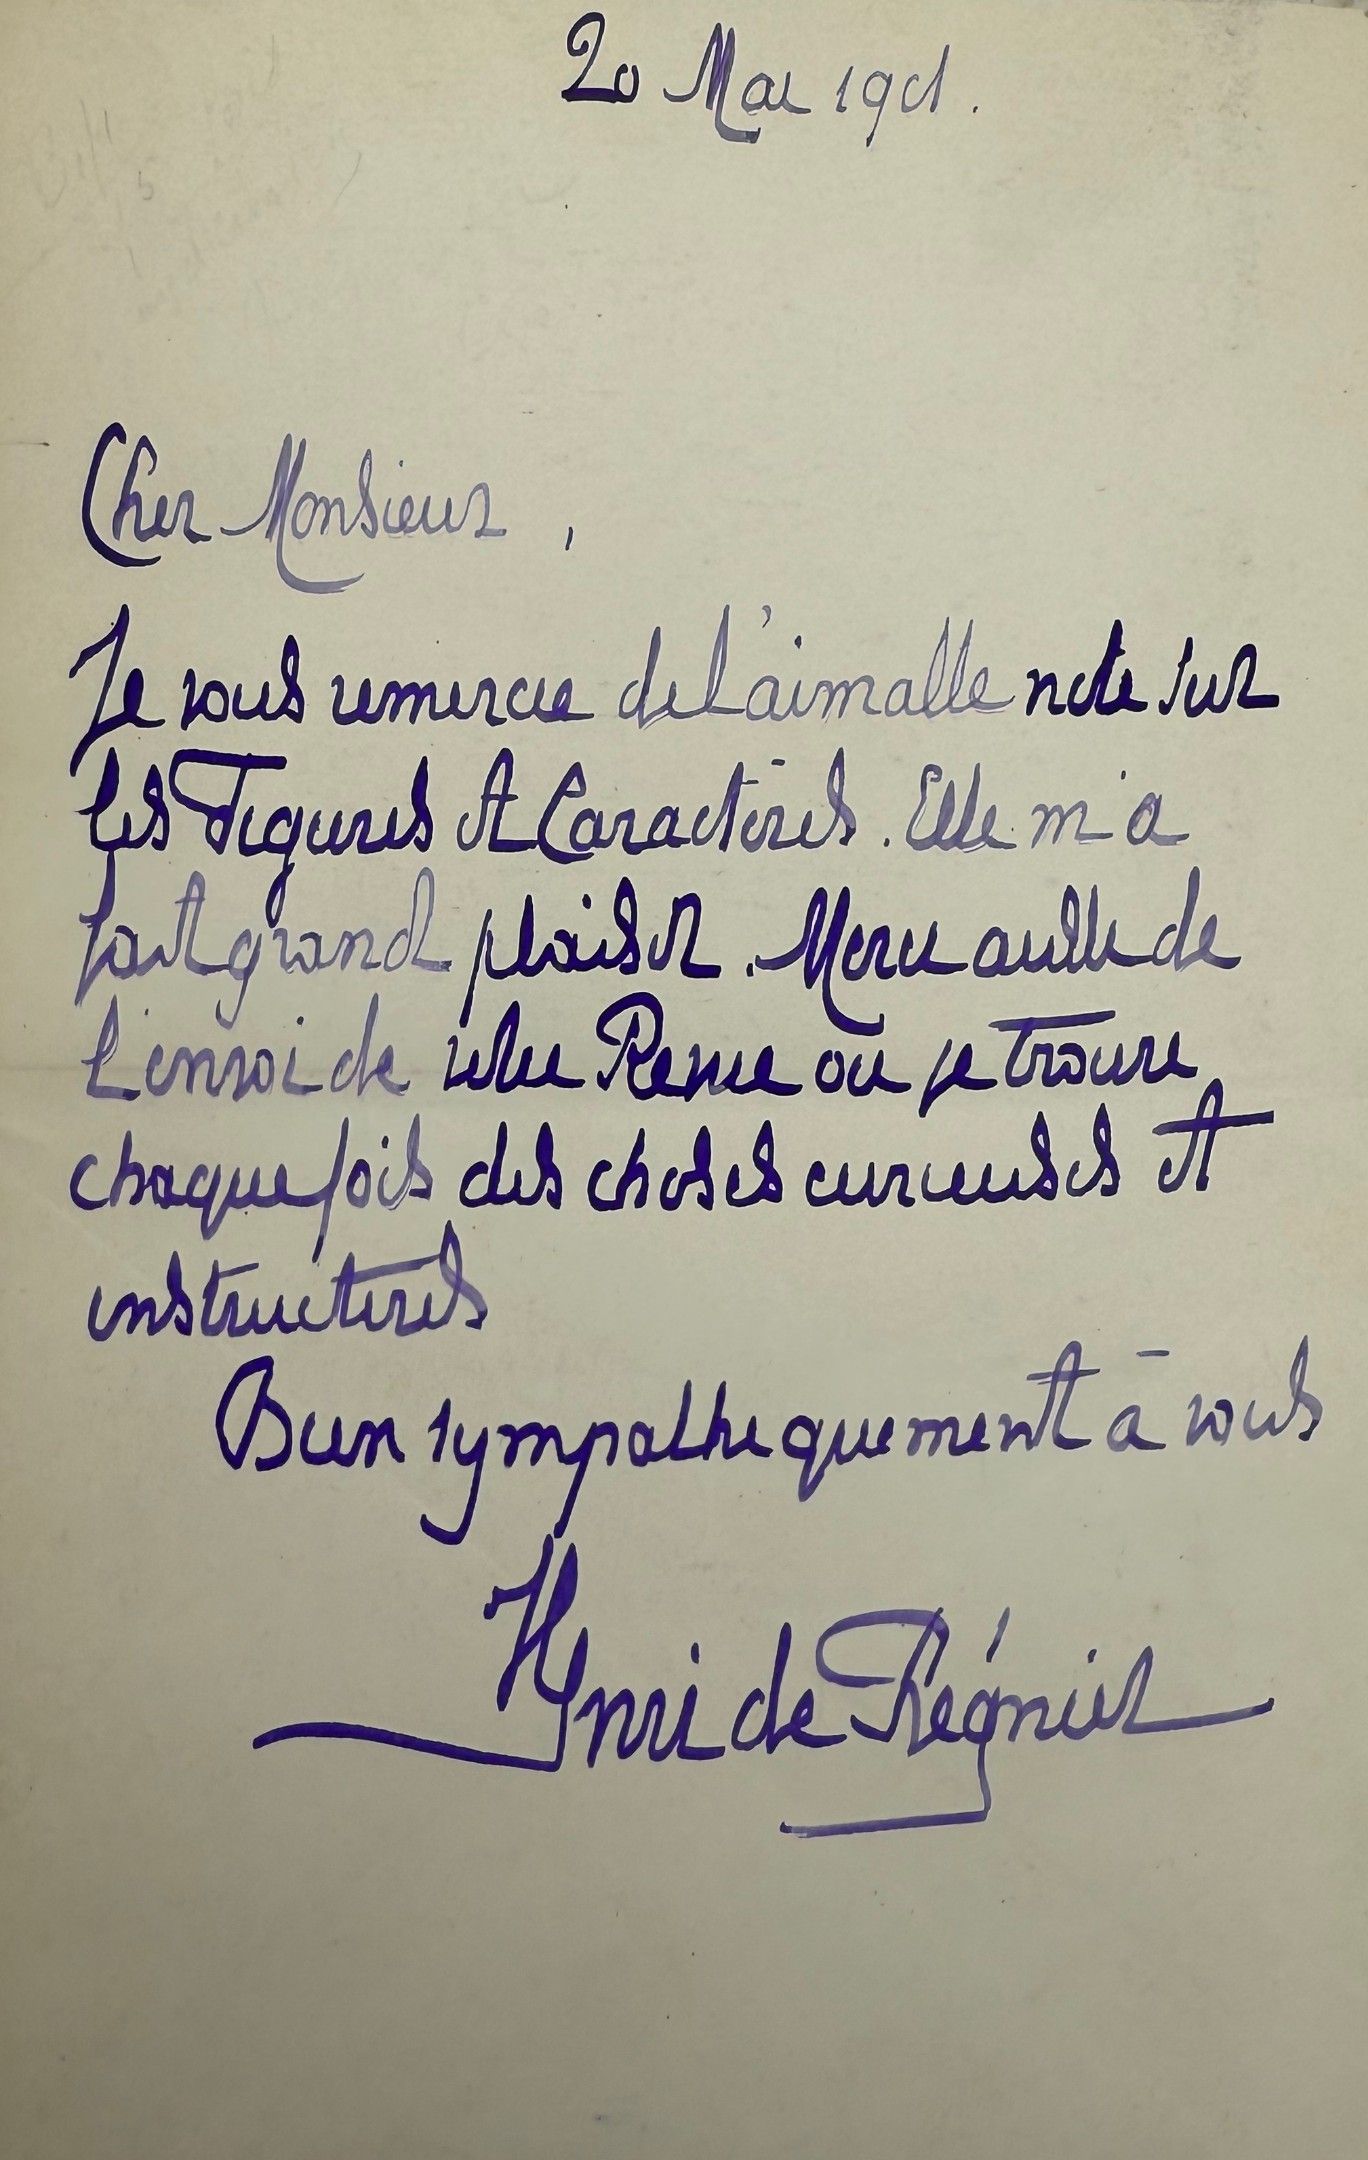 20 Mai 1901.
Cher Monsieur,
Je vous remercie de l'aimable note sur
les Figures et Caractères. Elle m'a
fait grand plaisir. Merci aussi de
l'envoi de votre Revue où je trouve
chaque fois des choses curieuses et
instructives
Bien sympathiquement à vous
Henri de Régnier